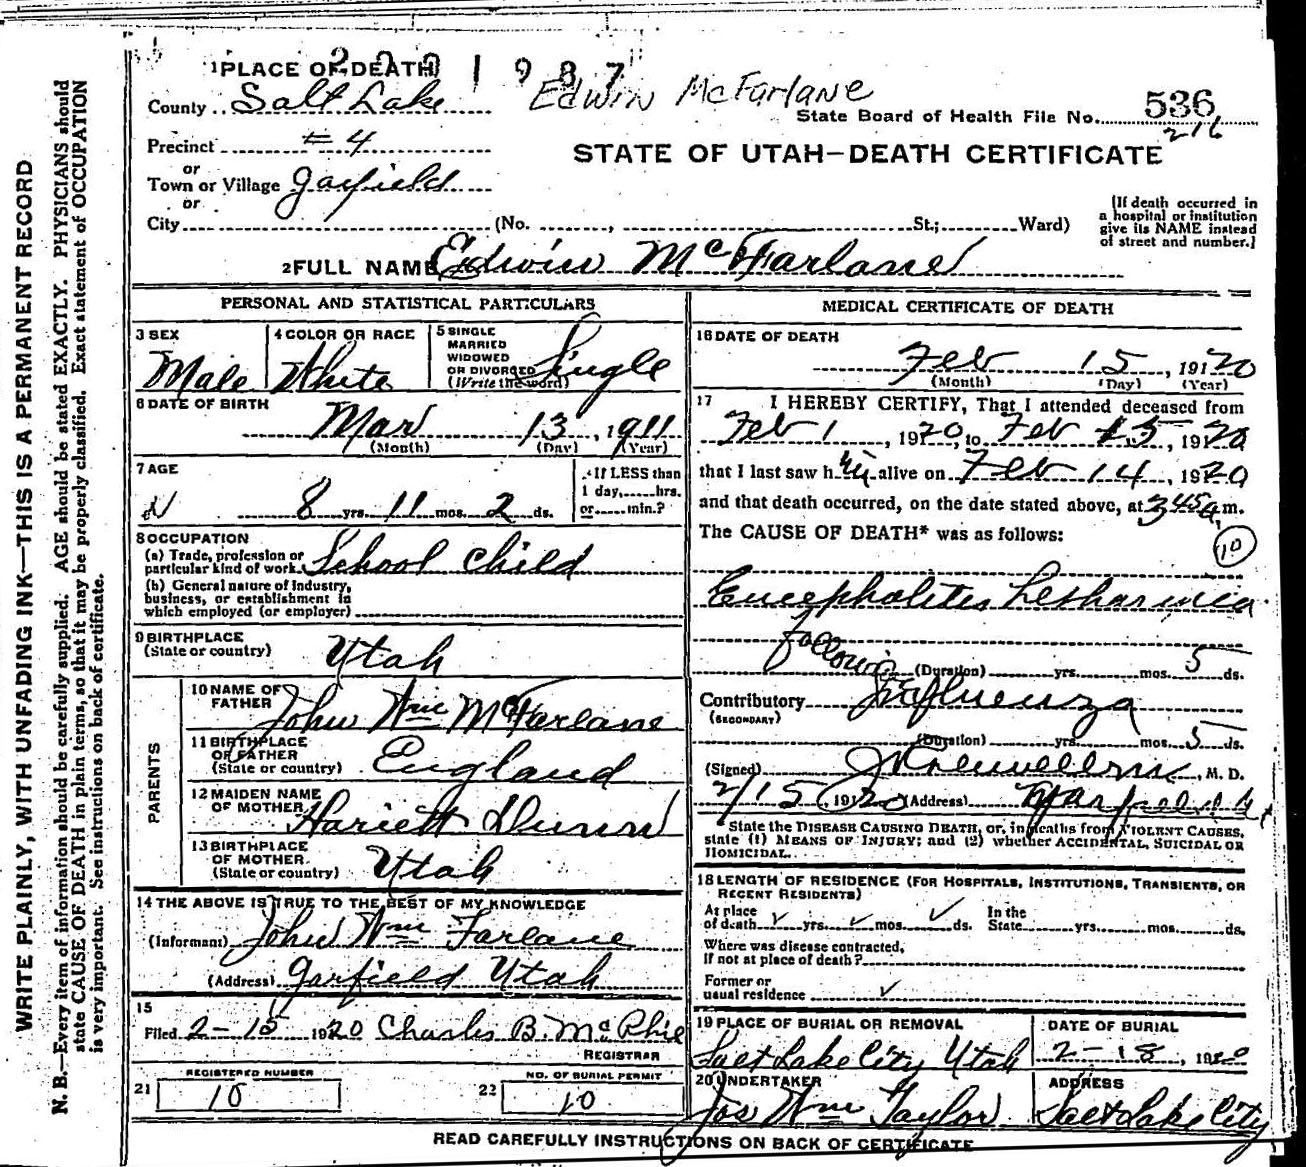 1 PLACE OF DEATH
2 2 0 1 9 8 7
County Salt Lake
Edwin McFarlane
State Board of Health File No. 536
216
Precinct #4
STATE OF UTAH—DEATH CERTIFICATE
or
Town or Village Garfield
or
City (No. , St.; Ward)
[If death occurred in a hospital or institution give its NAME instead of street and number.]
2 FULL NAME Edwin McFarlane
PERSONAL AND STATISTICAL PARTICULARS
3 SEX
Male
4 COLOR OR RACE
White
5 SINGLE
MARRIED
WIDOWED
OR DIVORCED
(Write the word)
Single
6 DATE OF BIRTH
Mar 13, 1911
(Month) (Day) (Year)
7 AGE
8 yrs. 11 mos. 2 ds.
If LESS than
1 day,......hrs.
or......min.?
8 OCCUPATION
(a) Trade, profession or
particular kind of work School Child
(b) General nature of Industry,
business, or establishment in
which employed (or employer)
9 BIRTHPLACE
(State or country) Utah
PARENTS
10 NAME OF
FATHER John Wm McFarlane
11 BIRTHPLACE
OF FATHER
(State or country) England
12 MAIDEN NAME
OF MOTHER Hariett Dunn
13 BIRTHPLACE
OF MOTHER
(State or country) Utah
14 THE ABOVE IS TRUE TO THE BEST OF MY KNOWLEDGE
(Informant) John Wm Farlane
(Address) Garfield Utah
15
Filed 2-15 1920 Charles B. McPhie
REGISTRAR
21 REGISTERED NUMBER
10
22 NO. OF BURIAL PERMIT
10
MEDICAL CERTIFICATE OF DEATH
16 DATE OF DEATH
Feb 15, 19120
(Month) (Day) (Year)
17 I HEREBY CERTIFY, That I attended deceased from
Feb 1, 1920, to Feb 15, 1920
that I last saw him alive on Feb 14, 1920
and that death occurred, on the date stated above, at 3 45 a.m.
The CAUSE OF DEATH* was as follows:
10
Encephalitis Lethargica
following
(Duration) yrs. mos. 5 ds.
Contributory Influenza
(SECONDARY)
(Duration) yrs. mos. 5 ds.
(Signed) , M. D.
2/15, 19120 (Address) Garfield Ut
State the DISEASE CAUSING DEATH, or, in deaths from VIOLENT CAUSES,
state (1) MEANS OF INJURY; and (2) whether ACCIDENTAL, SUICIDAL OR
HOMICIDAL.
18 LENGTH OF RESIDENCE (FOR HOSPITALS, INSTITUTIONS, TRANSIENTS, OR
RECENT RESIDENTS)
At place
of death yrs. mos. ds. In the
State yrs. mos. ds.
Where was disease contracted,
If not at place of death?
Former or
usual residence
19 PLACE OF BURIAL OR REMOVAL
Salt Lake City Utah
DATE OF BURIAL
2-18, 1920
20 UNDERTAKER
Jos Wm Taylor
ADDRESS
Salt Lake City
READ CAREFULLY INSTRUCTIONS ON BACK OF CERTIFICATE
WRITE PLAINLY, WITH UNFADING INK—THIS IS A PERMANENT RECORD
N. B.—Every item of information should be carefully supplied. AGE should be stated EXACTLY. PHYSICIANS should
state CAUSE OF DEATH in plain terms, so that it may be properly classified. Exact statement of OCCUPATION
is very important. See instructions on back of certificate.